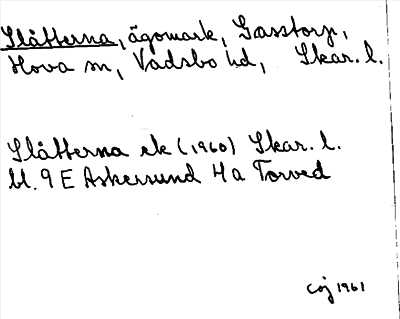 Slåtterna, ägomark, Gasstorp,
Hova sn, Vadsbo hd, Skar. l.
Slåtterna ek (1960) Skar. l.
bl. 9 E Askersund 4 a Torved
COJ 1961